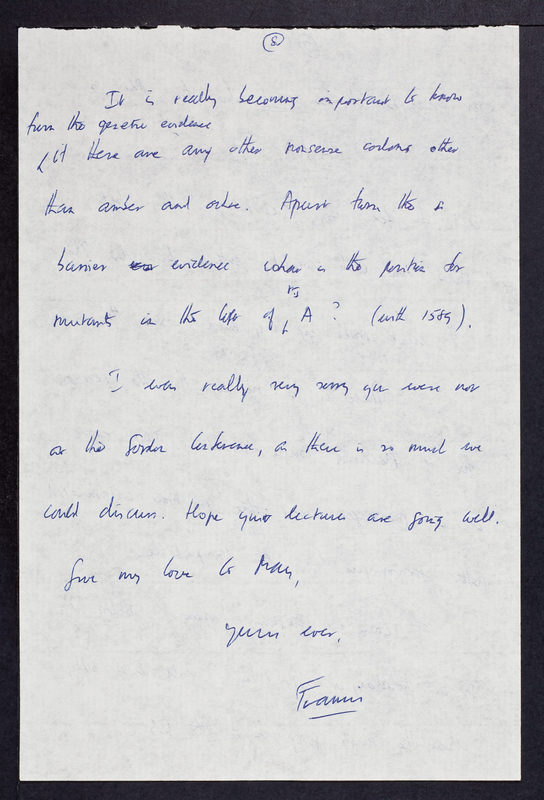 8
It is really becoming important to know
from the genetic evidence
if there are any other nonsense codons other
than amber and ochre. Apart from the
barrier evidence what is the position for
mutants in the left of A ? (with 1589).
I was really very sorry you were not
at the Gordon Conference, as there is so much we
could discuss. Hope your lectures are going well.
Give my love to May,
Yours ever,
Francis